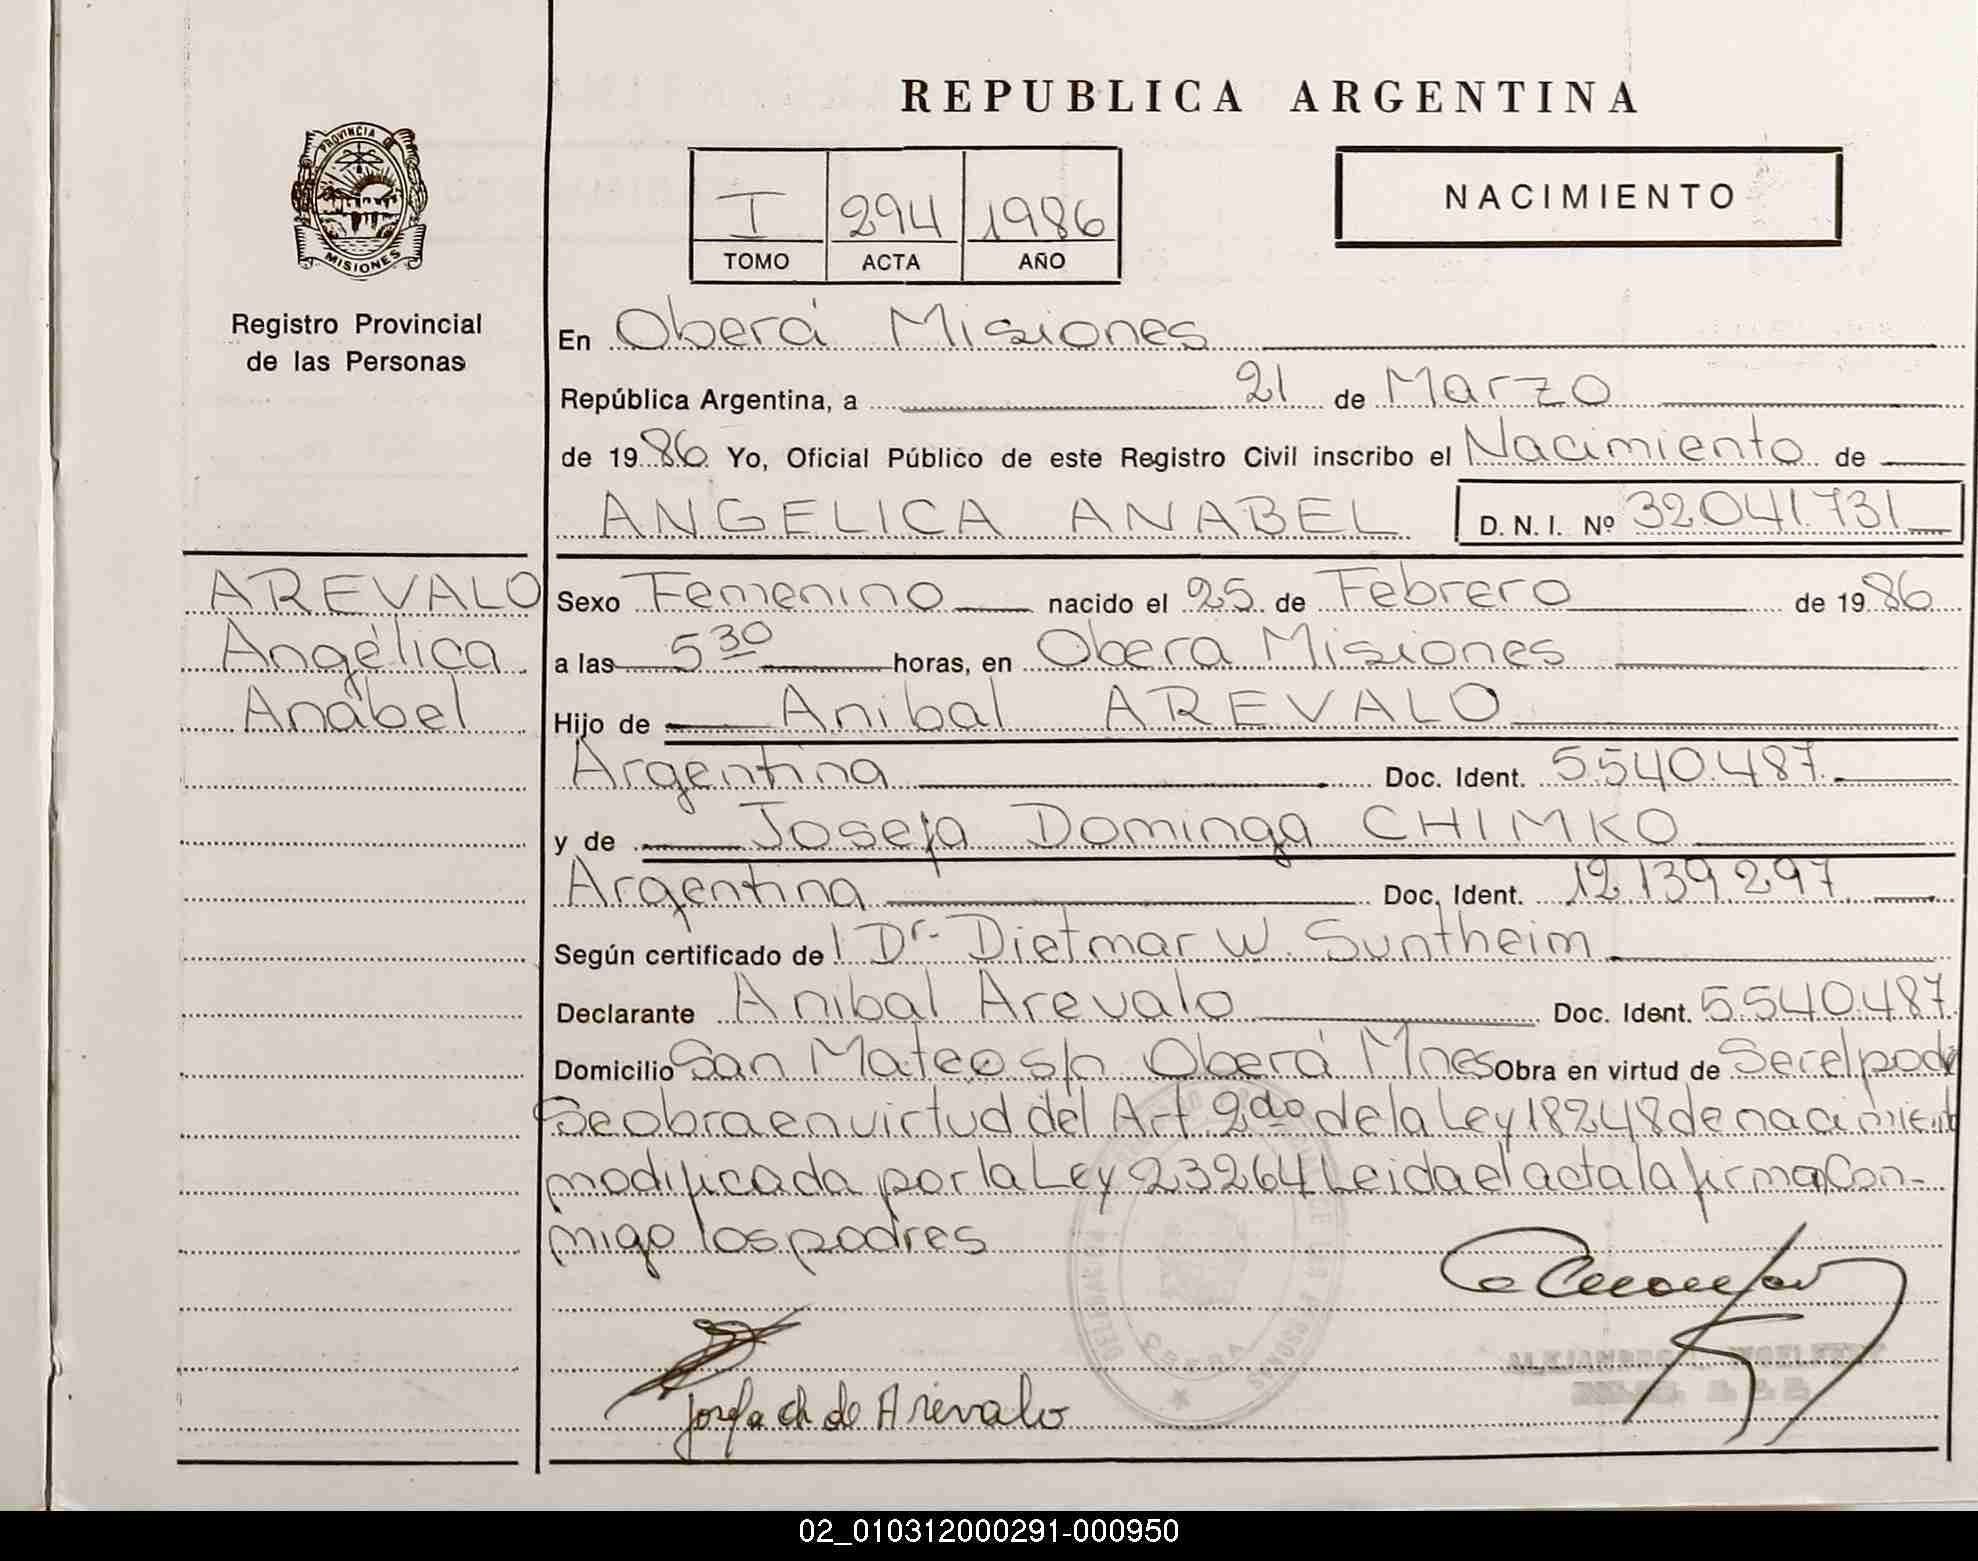 REPUBLICA ARGENTINA
PROVINCIA DE
MISIONES
Registro Provincial
de las Personas
I 294 1986
TOMO ACTA AÑO
NACIMIENTO
En Oberá Misiones
República Argentina, a 21 de Marzo
de 1986 Yo, Oficial Público de este Registro Civil inscribo el Nacimiento de
ANGELICA ANABEL D. N. I. Nº 32.041.731
AREVALO
Angélica
Anabel
Sexo Femenino nacido el 25 de Febrero de 1986
a las 5 30 horas, en Obera Misiones
Hijo de Anibal AREVALO
Argentina Doc. Ident. 5.540.487.
y de Josefa Dominga CHIMKO
Argentina Doc. Ident. 12.139.297
Según certificado de l Dr. Dietmar W. Suntheim
Declarante Anibal Arevalo Doc. Ident. 5.540.487.
Domicilio San Mateo s/n Oberá Mnes Obra en virtud de Ser el padre
Se obra en virtud del Art 2do de la Ley 18248 de nacimient
modificada por la Ley 23264 Leida el acta la firman con-
migo los padres
Josefa Ch de Arévalo
OBERA
02_010312000291-000950